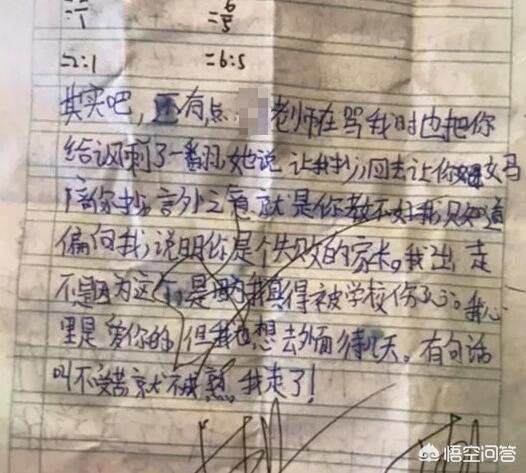 =6/5
=2:1
=6:5
其实吧,还有点 老师在骂我时也把你
给讽刺了一番,她说让我抄,回去让你妈
陪你抄,言外之意就是你教不好我,只知道
偏向我,说明你是个失败的家长。我出走
不是因为这个,是因为我真得被学校伤了。我心
里是爱你的,但我也想去外面待几天。有句话
叫不受苦就不成熟,我走了!
悟空问答